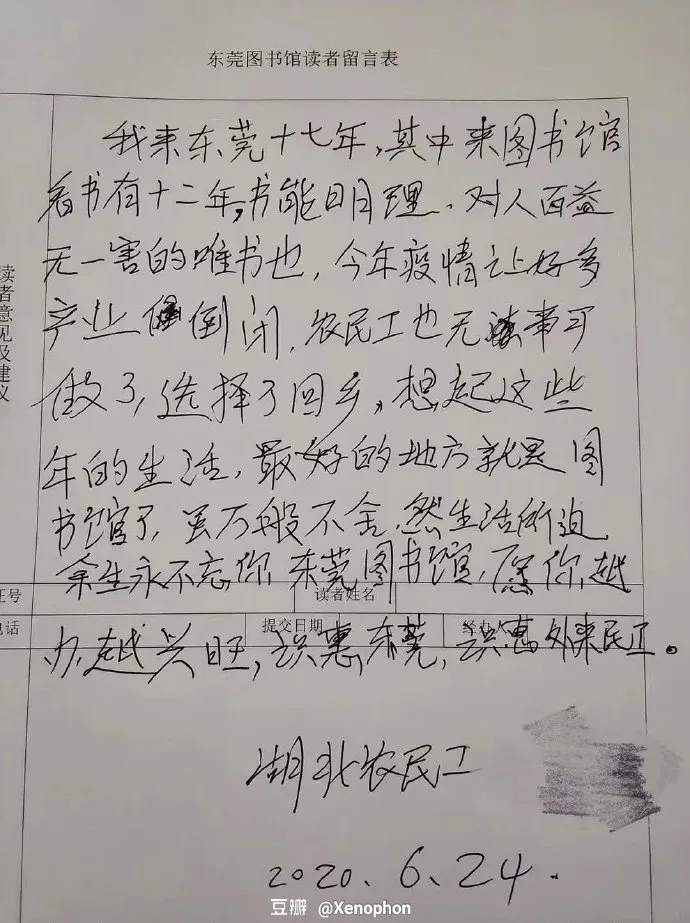 东莞图书馆读者留言表
我来东莞十七年,其中来图书馆
看书有十二年,书能明理,对人百益
无一害的唯书也,今年疫情让好多
产业倒闭,农民工也无事可
做了,选择了回乡,想起这些
年的生活,最好的地方就是图
书馆了,虽万般不舍,然生活所迫
余生永不忘你,东莞图书馆,愿你越
办越兴旺,识惠东莞,识惠外来民工。
读者意见及建议
证号
读者姓名
电话
提交日期
经办人
湖北农民工
2020.6.24.
豆瓣 @Xenophon